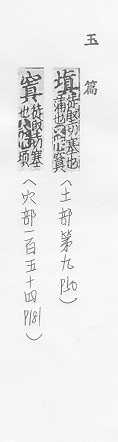 玉篇
塡 徒堅切塞也
滿也又窴 (土部第九 P10)
窴 徒堅切塞
也 (穴部一百五十四 P181)